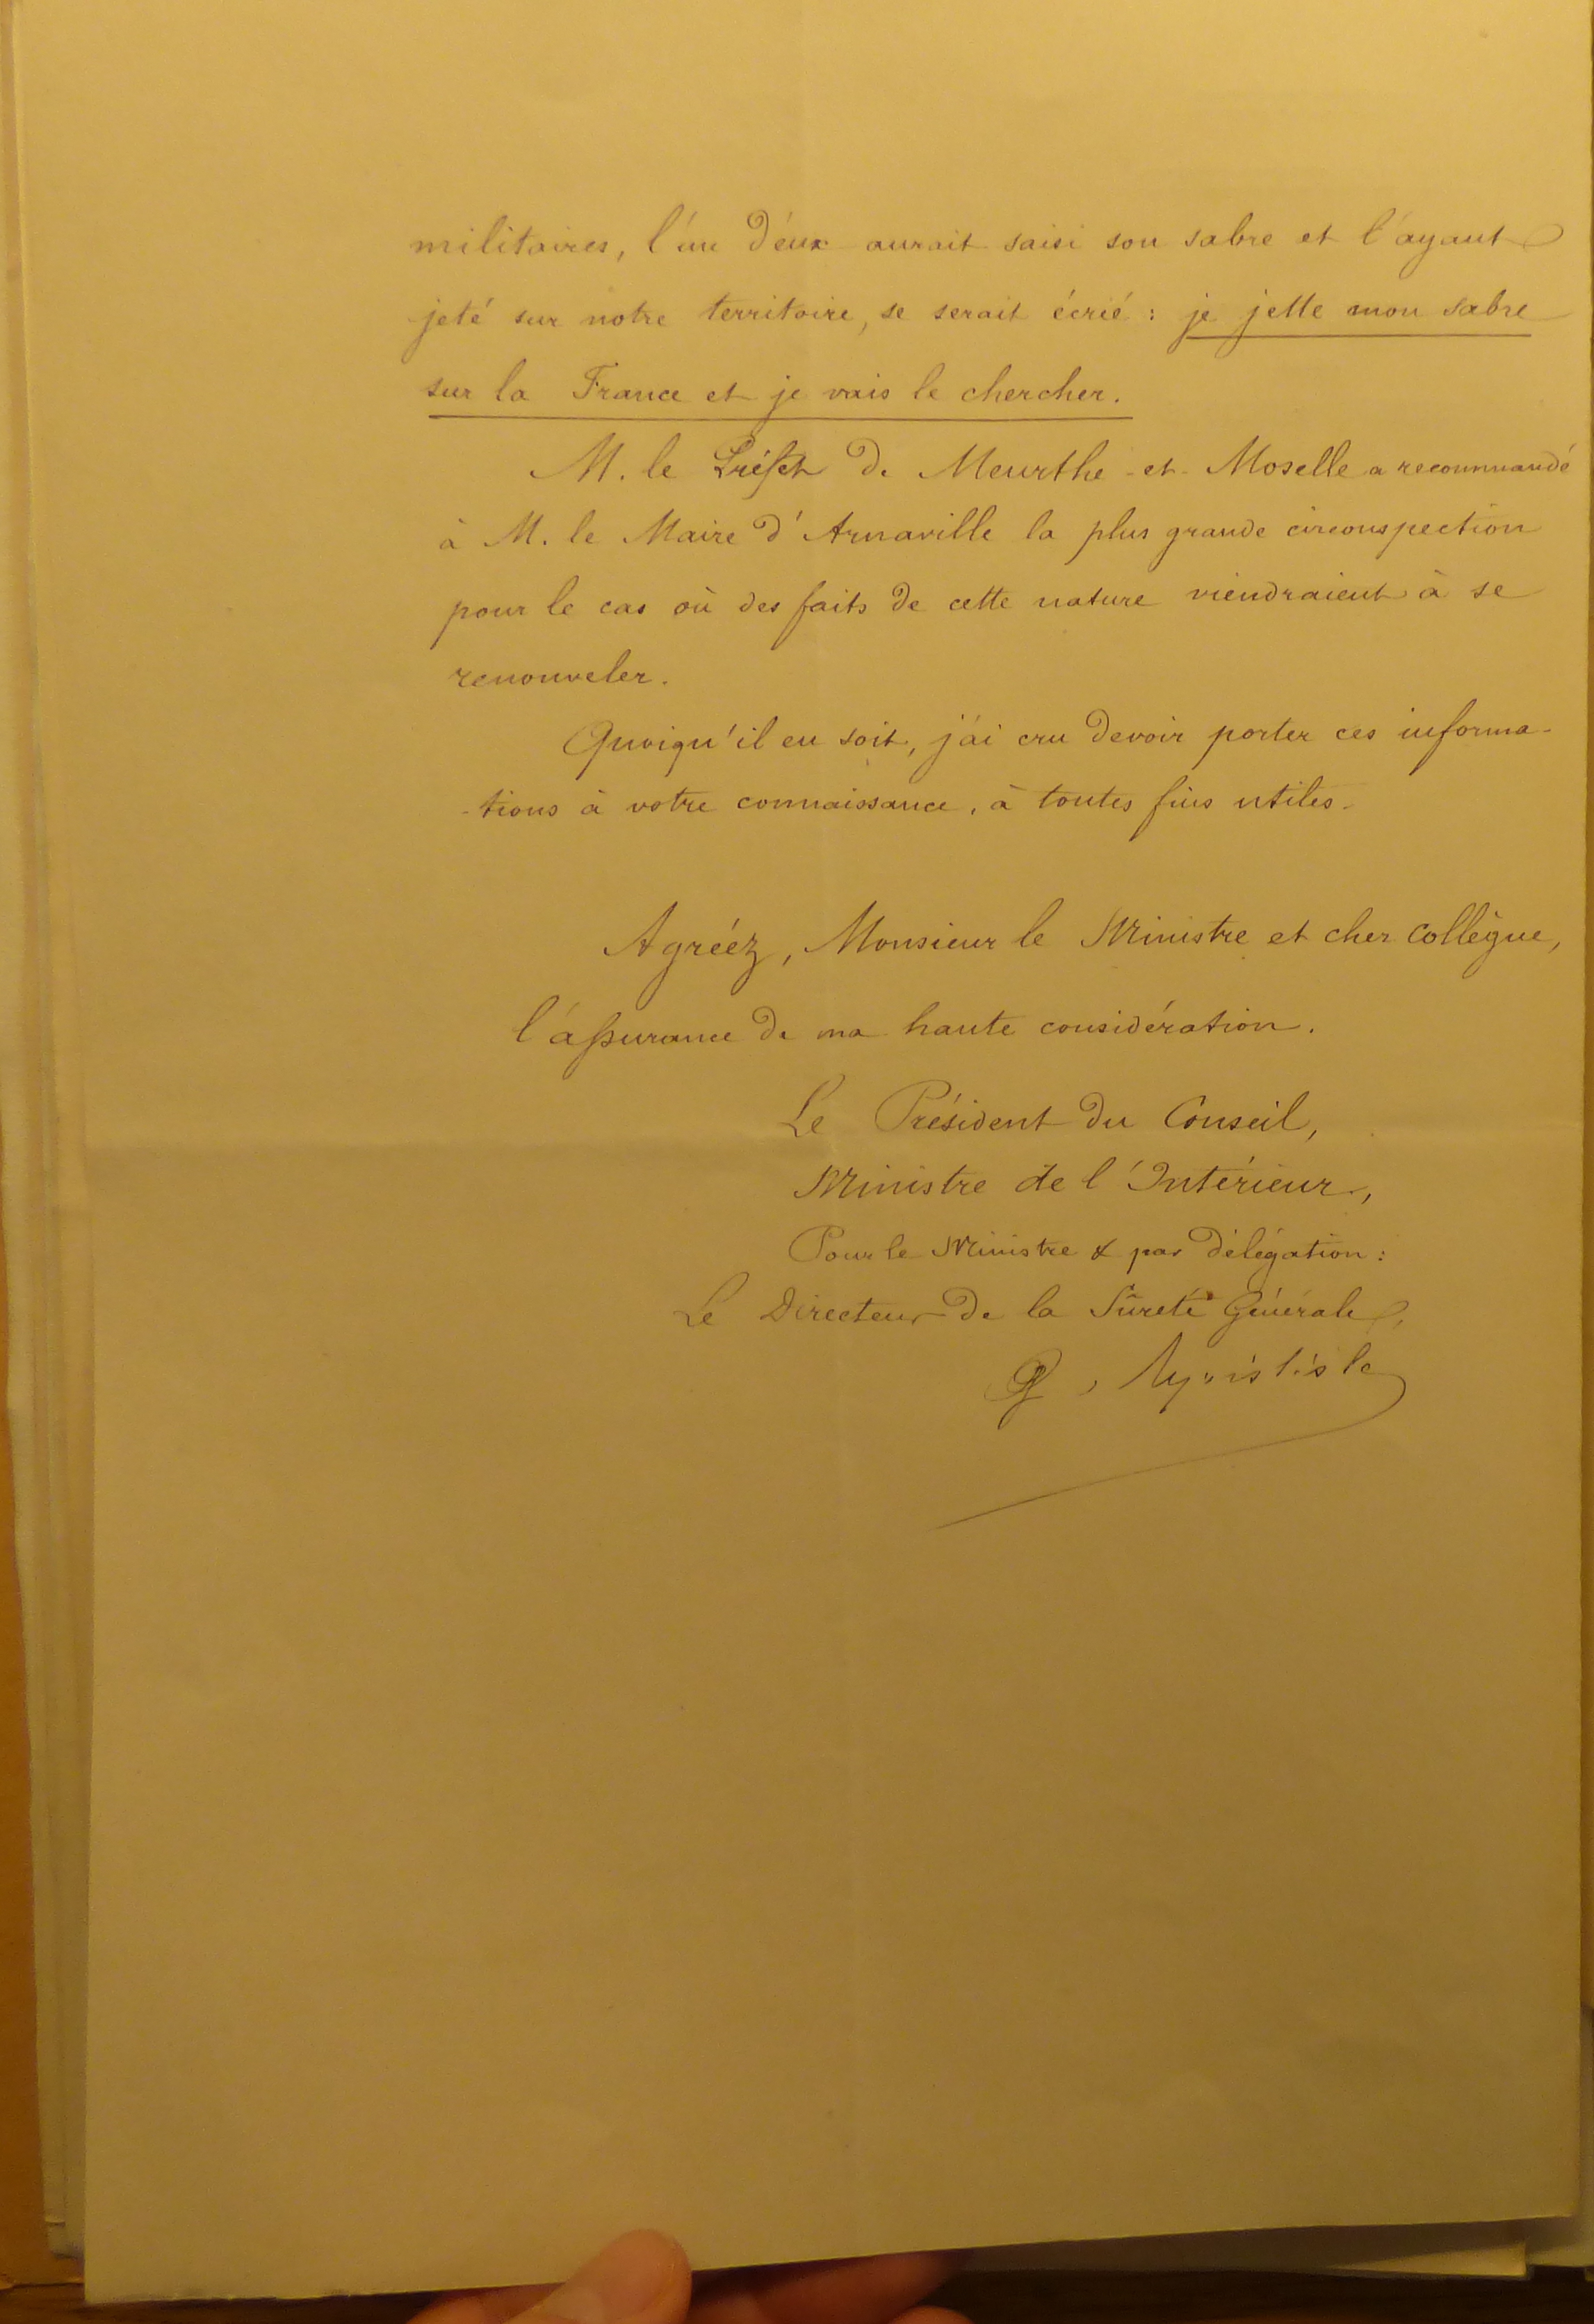 militaires, l'un d'eux aurait saisi son sabre et l'ayant
jeté sur notre territoire, se serait écrié : je jette mon sabre
sur la France et je vais le chercher.
M. le Préfet de Meurthe-et-Moselle a recommandé
à M. le Maire d'Arnaville la plus grande circonspection
pour le cas où des faits de cette nature viendraient à se
renouveler.
Quoiqu'il en soit, j'ai cru devoir porter ces informa-
-tions à votre connaissance, à toutes fins utiles.
Agréez, Monsieur le Ministre et cher collègue,
l'assurance de ma haute considération.
Le Président du Conseil,
Ministre de l'Intérieur,
Pour le Ministre & par délégation :
Le Directeur de la Sûreté Générale,